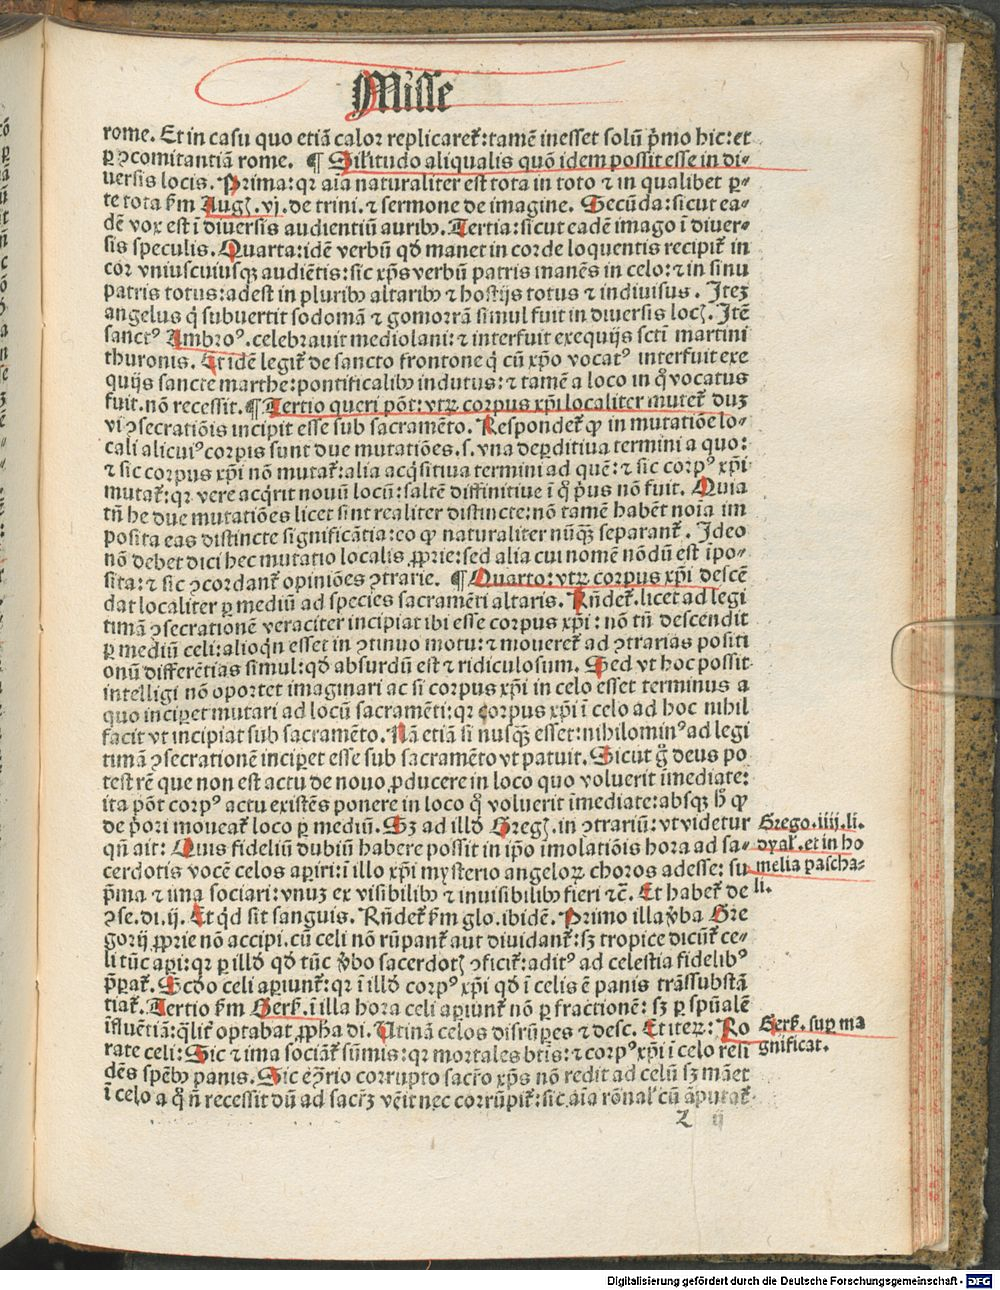 Misse
rome. Et in casu quo etiā calor replicaret᷑: tamē inesset solū p̄mo hic: et
ꝑ ꝯcomitantiā rome. ¶ Sil'itudo aliqualis quō idem possit esse in di⸗
uersis locis. Prima: qꝛ aīa naturaliter est tota in toto ⁊ in qualibet ꝑ⸗
te tota k̄m Augꝭ. vj. de trini. ⁊ sermone de imagine. Secūda: sicut ea⸗
dē vox est ī diuersis audientiū auribꝰ. Tertia: sicut eadē imago ī diuer⸗
sis speculis. Quarta: idē verbū qď manet in corde loquentis recipit᷑ in
cor vniuscuiusqꝫ audiētis: sic xp̄s verbū patris manēs in celo: ⁊ in sinu
patris totus: adest in pluribꝰ altaribꝰ ⁊ hostijs totus ⁊ indiuisus. Iteꝫ
angelus q̇ subuertit sodomā ⁊ gomorrā simul fuit in diuersis locꝭ. Itē
sanctꝰ Ambroꝰ. celebrauit mediolani: ⁊ interfuit exequijs scti̅ martini
thuronis. Et idē legit᷑ de sancto frontone q̇ cū xp̄o vocatꝰ interfuit exe
quijs sancte marthe: pontificalibꝰ indutus: ⁊ tamē a loco in q̊ vocatus
fuit. nō recessit. ¶ Tertio queri pōt: vtꝝ corpus xp̄i localiter mutet᷑ duꝫ
vi ꝯsecratiōis incipit esse sub sacramēto. Respondet᷑ ꝙ in mutatiōe lo⸗
cali alicuiꝰ corpis sunt due mutatiōes. s. vna deꝑditiua termini a quo:
⁊ sic corpus xp̄i nō mutat᷑: alia acq̇sitiua termini ad quē: ⁊ sic corpꝰ xp̄i
mutat᷑: qꝛ vere acq̇rit nouū locū: saltē diffinitiue ī q̊ p̄us nō fuit. Quia
tn̄ he due mutatiōes licet sint realiter distincte: nō tamē habēt noīa im
posita eas distincte significātia: eo ꝙ naturaliter nūqꝫ separant᷑. Ideo
nō debet dici hec mutatio localis ꝓprie: sed alia cui nomē nōdū est īpo⸗
sita: ⁊ sic ꝯcordant᷑ opiniōes ꝯtrarie. ¶ Quarto: vtꝝ corpus xp̄i descē
dat localiter ꝑ mediū ad species sacramēti altaris. Rn̄det᷑. licet ad legi
timā ꝯsecrationē veraciter incipiat ibi esse corpus xp̄i: nō tn̄ descendit
ꝑ mediū celi: alioq̇n esset in ꝯtinuo motu: ⁊ moueret᷑ ad ꝯtrarias positi
onū differētias simul: qď absurdū est ⁊ ridiculosum. Sed vt hoc possit
intelligi nō oportet imaginari ac si corpus xp̄i in celo esset terminus a
quo inciꝑet mutari ad locū sacramēti: qꝛ corpus xp̄i ī celo ad hoc nihil
facit vt incipiat sub sacramēto. Nā etiā si nusqꝫ esset: nihilominꝰ ad legi
timā ꝯsecrationē inciꝑet esse sub sacramēto vt patuit. Sicut g̊ deus po
test rē que non est actu de nouo ꝓducere in loco quo voluerit īmediate:
ita pōt corpꝰ actu existēs ponere in loco q̊ voluerit īmediate: absqꝫ h̊ ꝙ
de p̄ori moueat᷑ loco ꝑ mediū. Sꝫ ad illď Gregꝭ. in ꝯtrariū: vt videtur
qn̄ ait: Quis fideliū dubiū habere possit in ip̄o imolatiōis hora ad sa⸗
cerdotis vocē celos aꝑiri: ī illo xp̄i mysterio angeloꝝ choros adesse: su
p̄ma ⁊ īma sociari: vnuꝫ ex visibilibꝰ ⁊ inuisibilibꝰ fieri ⁊c̄. Et habet᷑ de
ꝯse. di. ij. Et q̇d sit sanguis. Rn̄det᷑ k̄m glo. ibidē. Primo illa v̄ba Gre
gorij ꝓprie nō accipi. cū celi nō rūpant᷑ aut diuidant᷑: sꝫ tropice dicūt᷑ ce⸗
li tūc aꝑi: qꝛ ꝑ illď qď tūc v̄bo sacerdotꝭ ꝯficit᷑: aditꝰ ad celestia fidelibꝰ
p̄ꝑat᷑. Scďo celi aꝑiunt᷑: qꝛ ī illď corpꝰ xp̄i qď ī celis ē panis trāssubstā
tiat᷑. Tertio k̄m Gerẜ. ī illa hora celi aꝑiunt᷑ nō ꝑ fractionē: sꝫ ꝑ sp̄ualē
īfluētiā: q̄lit᷑ optabat ꝓpha di. Utinā celos disrūpes ⁊ desc. Et iteꝝ: Ro
rate celi: Sic ⁊ ima sociāt᷑ sūmis: qꝛ mortales btīs: ⁊ corpꝰ xp̄i ī celo resi
dēs spēbꝰ panis. Sic ep̄rio corrupto sacr̄o xp̄s nō redit ad celū sꝫ māet
ī celo a q̊ n̄ recessit dū ad sacr̄ꝫ vēit nec corrūpit᷑: sic aīa rōnal' cū āputat᷑
Grego. iiij. li.
dyal'. et in ho
melia pascha⸗
li.
Gerẜ. suꝑ ma
gnificat.
Z ij
Digitalisierung gefördert durch die Deutsche Forschungsgemeinschaft - DFG